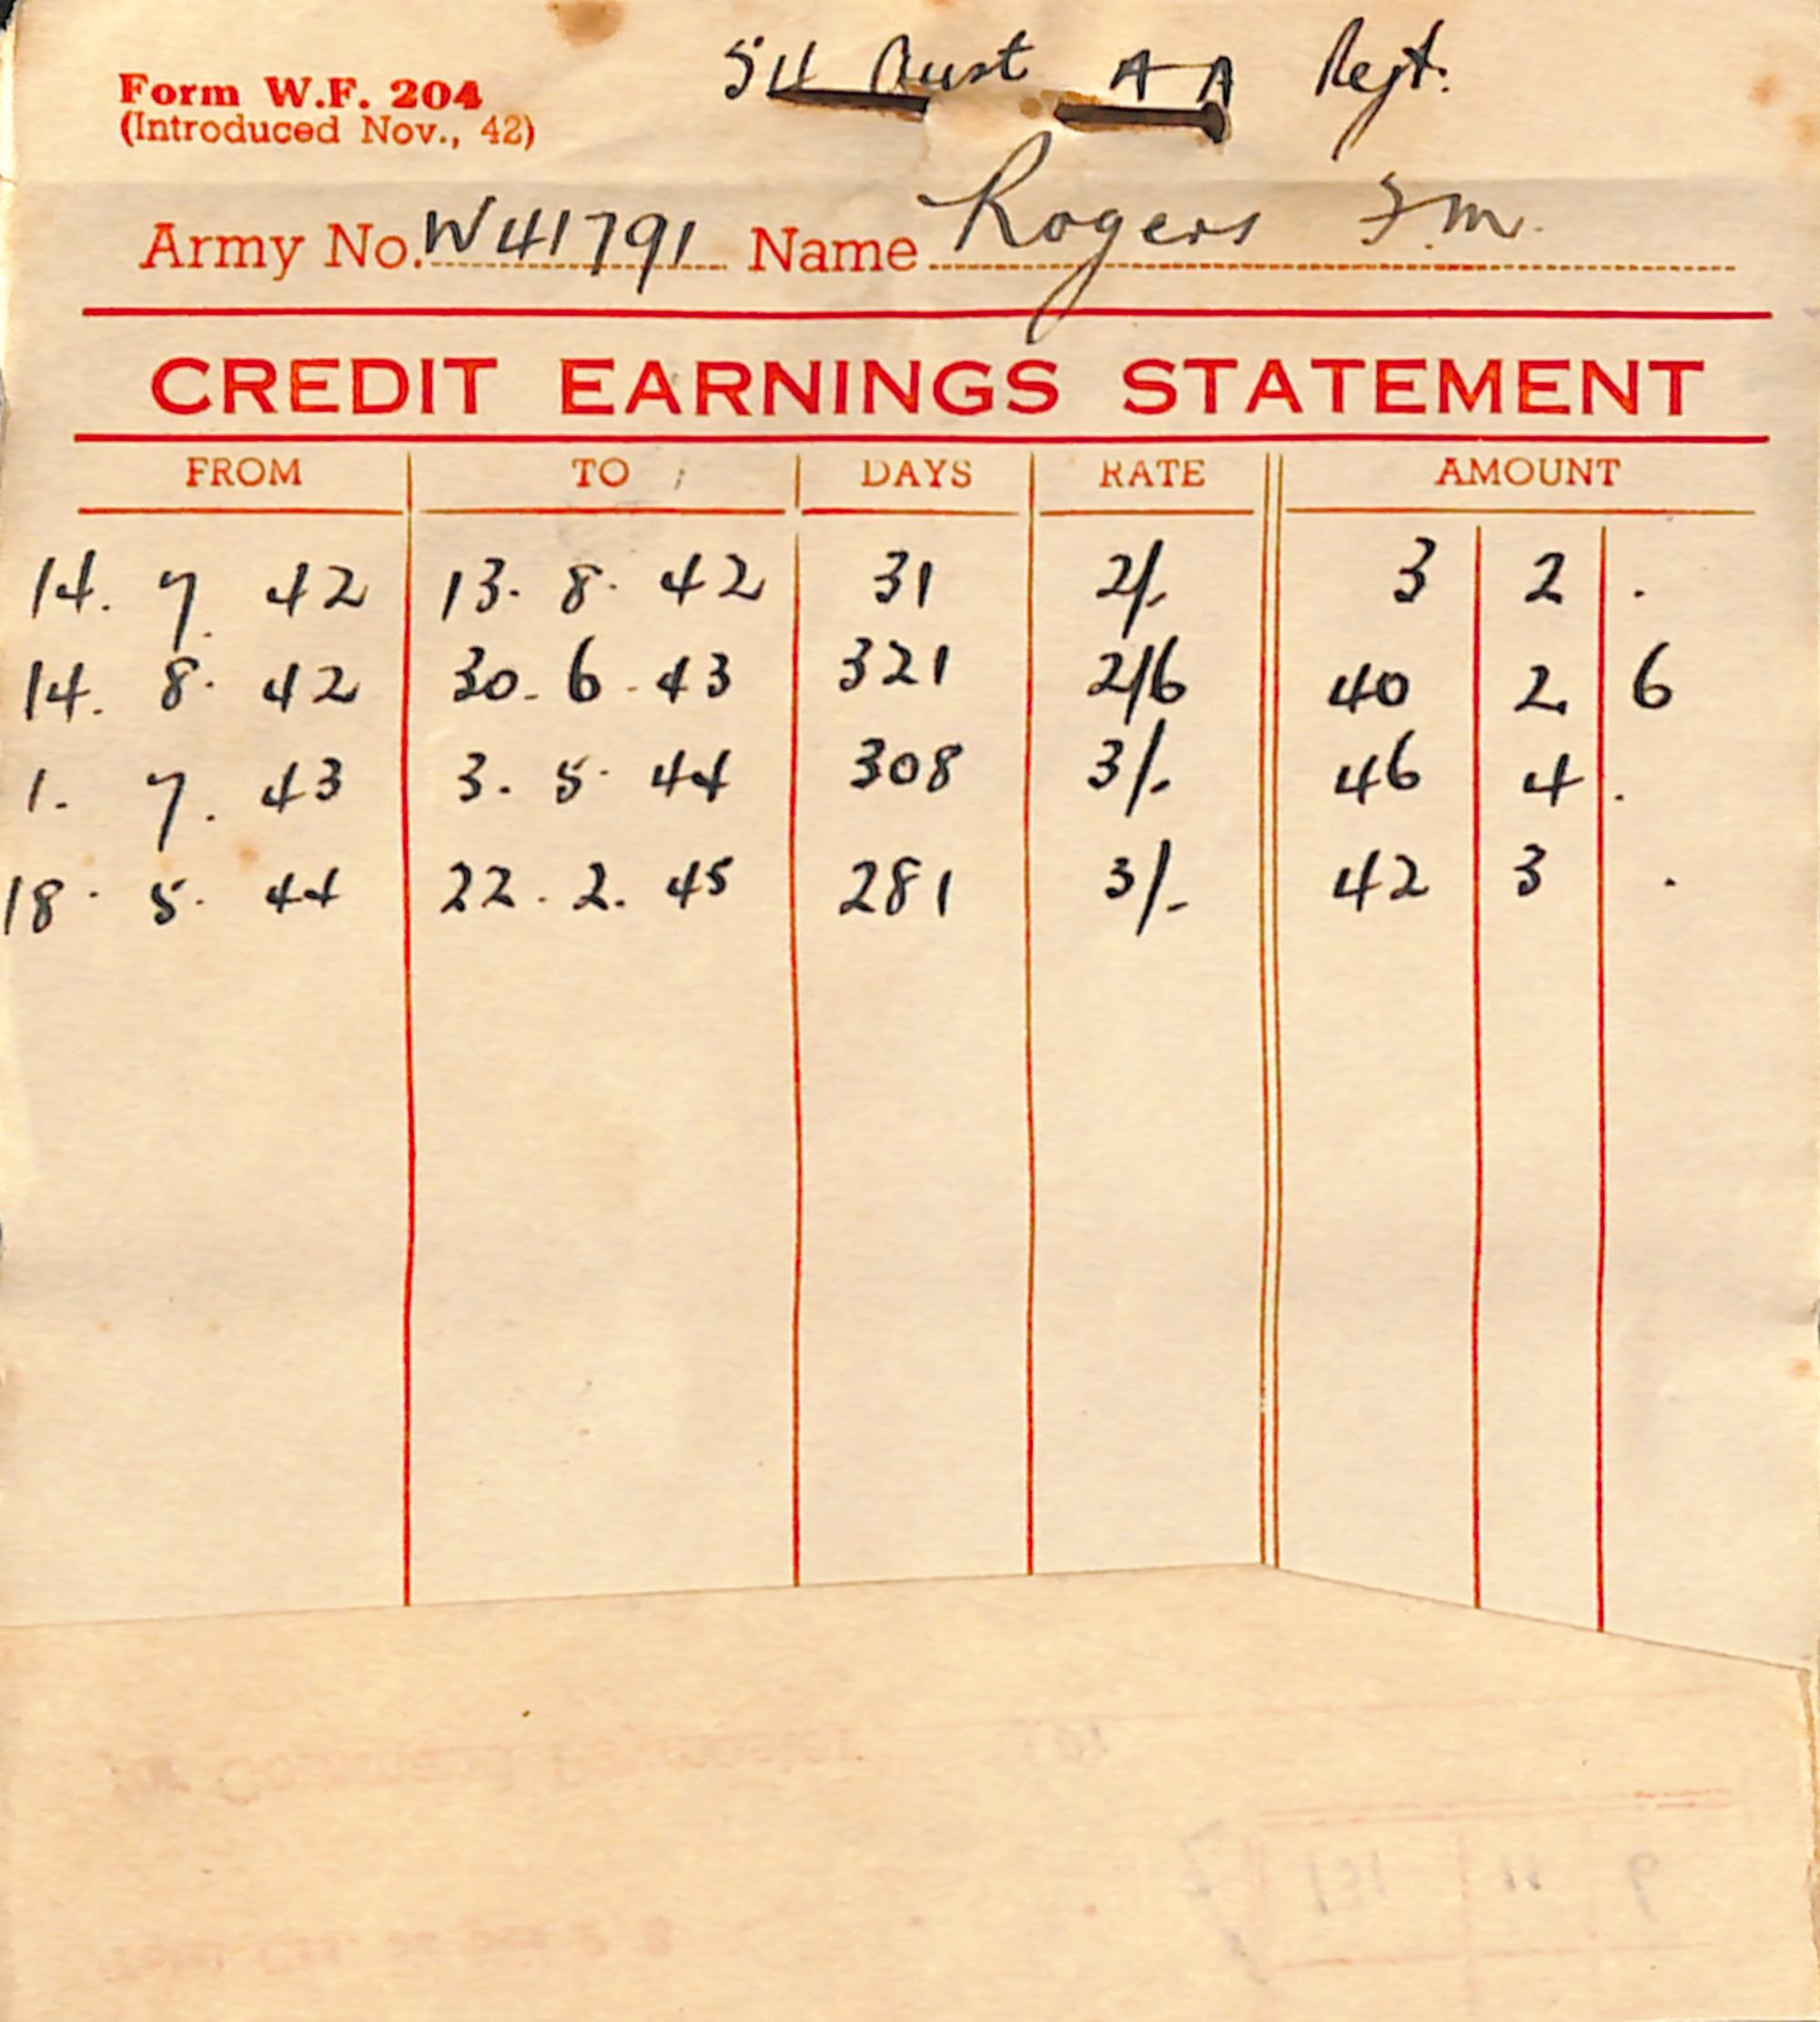 54 Aust AA Regt.
Form W.F. 204
(Introduced Nov., 42)
Army No. W41791 Name Rogers F.M.
CREDIT EARNINGS STATEMENT
FROM TO DAYS RATE AMOUNT
14. 7. 42 13. 8. 42 31 2/- 3 2 .
14. 8. 42 30. 6. 43 321 2/6 40 2 6
1. 7. 43 3. 5. 44 308 3/- 46 4 .
18. 5. 44 22. 2. 45 281 3/- 42 3 .